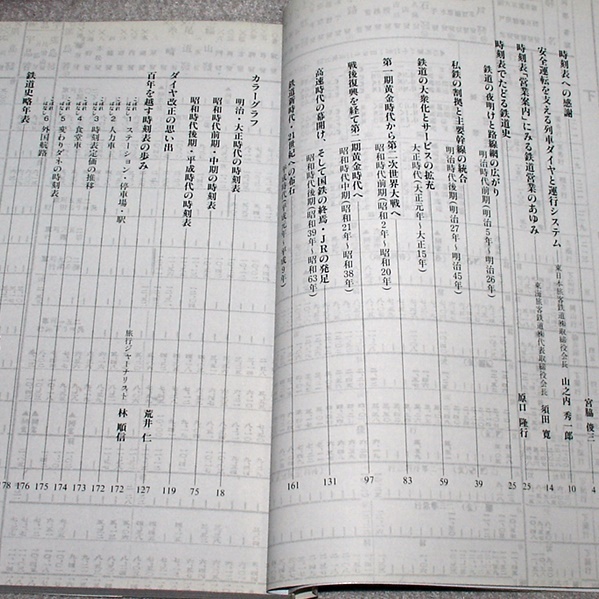 時刻表への感謝 宮脇 俊三 4
安全運転を支える列車ダイヤと運行システム 東日本旅客鉄道㈱取締役会長 山之内 秀一郎 10
東海旅客鉄道㈱代表取締役会長 須田 寛 14
時刻表「営業案内」にみる鉄道営業のあゆみ 原口 隆行 25
時刻表でたどる鉄道史 25
鉄道の夜明けと路線網の広がり 明治時代前期(明治5年〜明治26年)
私鉄の割拠と主要幹線の統合 明治時代後期(明治27年〜明治45年) 39
鉄道の大衆化とサービスの拡充 大正時代(大正元年〜大正15年) 59
第一期黄金時代から第二次世界大戦へ 昭和時代前期(昭和2年〜昭和20年) 83
戦後復興を経て第二期黄金時代へ 昭和時代中期(昭和21年〜昭和38年) 97
高速時代の幕開け、そして国鉄の終焉・JRの発足 昭和時代後期(昭和39年〜昭和63年) 131
鉄道新時代・21世紀への布石 平成時代(平成元年〜平成9年) 161
カラーグラフ
明治・大正時代の時刻表
昭和時代前期・中期の時刻表 18
昭和時代後期・平成時代の時刻表 75
ダイヤ改正の思い出 119
百年を越す時刻表の歩み 荒井 仁 127
旅行ジャーナリスト 林 順信
こぼれ1 ステーション・停車場・駅 172
こぼれ2 人力車 172
こぼれ3 時刻表定価の推移 173
こぼれ4 食堂車 174
こぼれ5 変わりダネの時刻表 175
こぼれ6 外国航路 176
鉄道史略年表 178